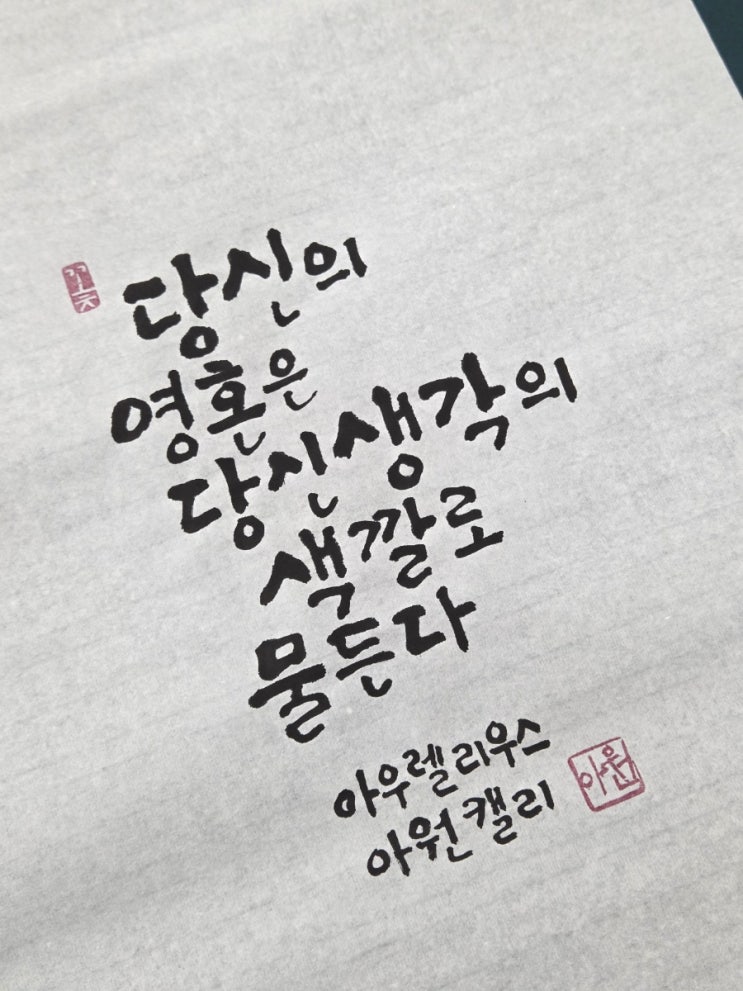 꽃
당신의
영혼은
당신생각의
색깔로
물든다
아우렐리우스
아원캘리
아원